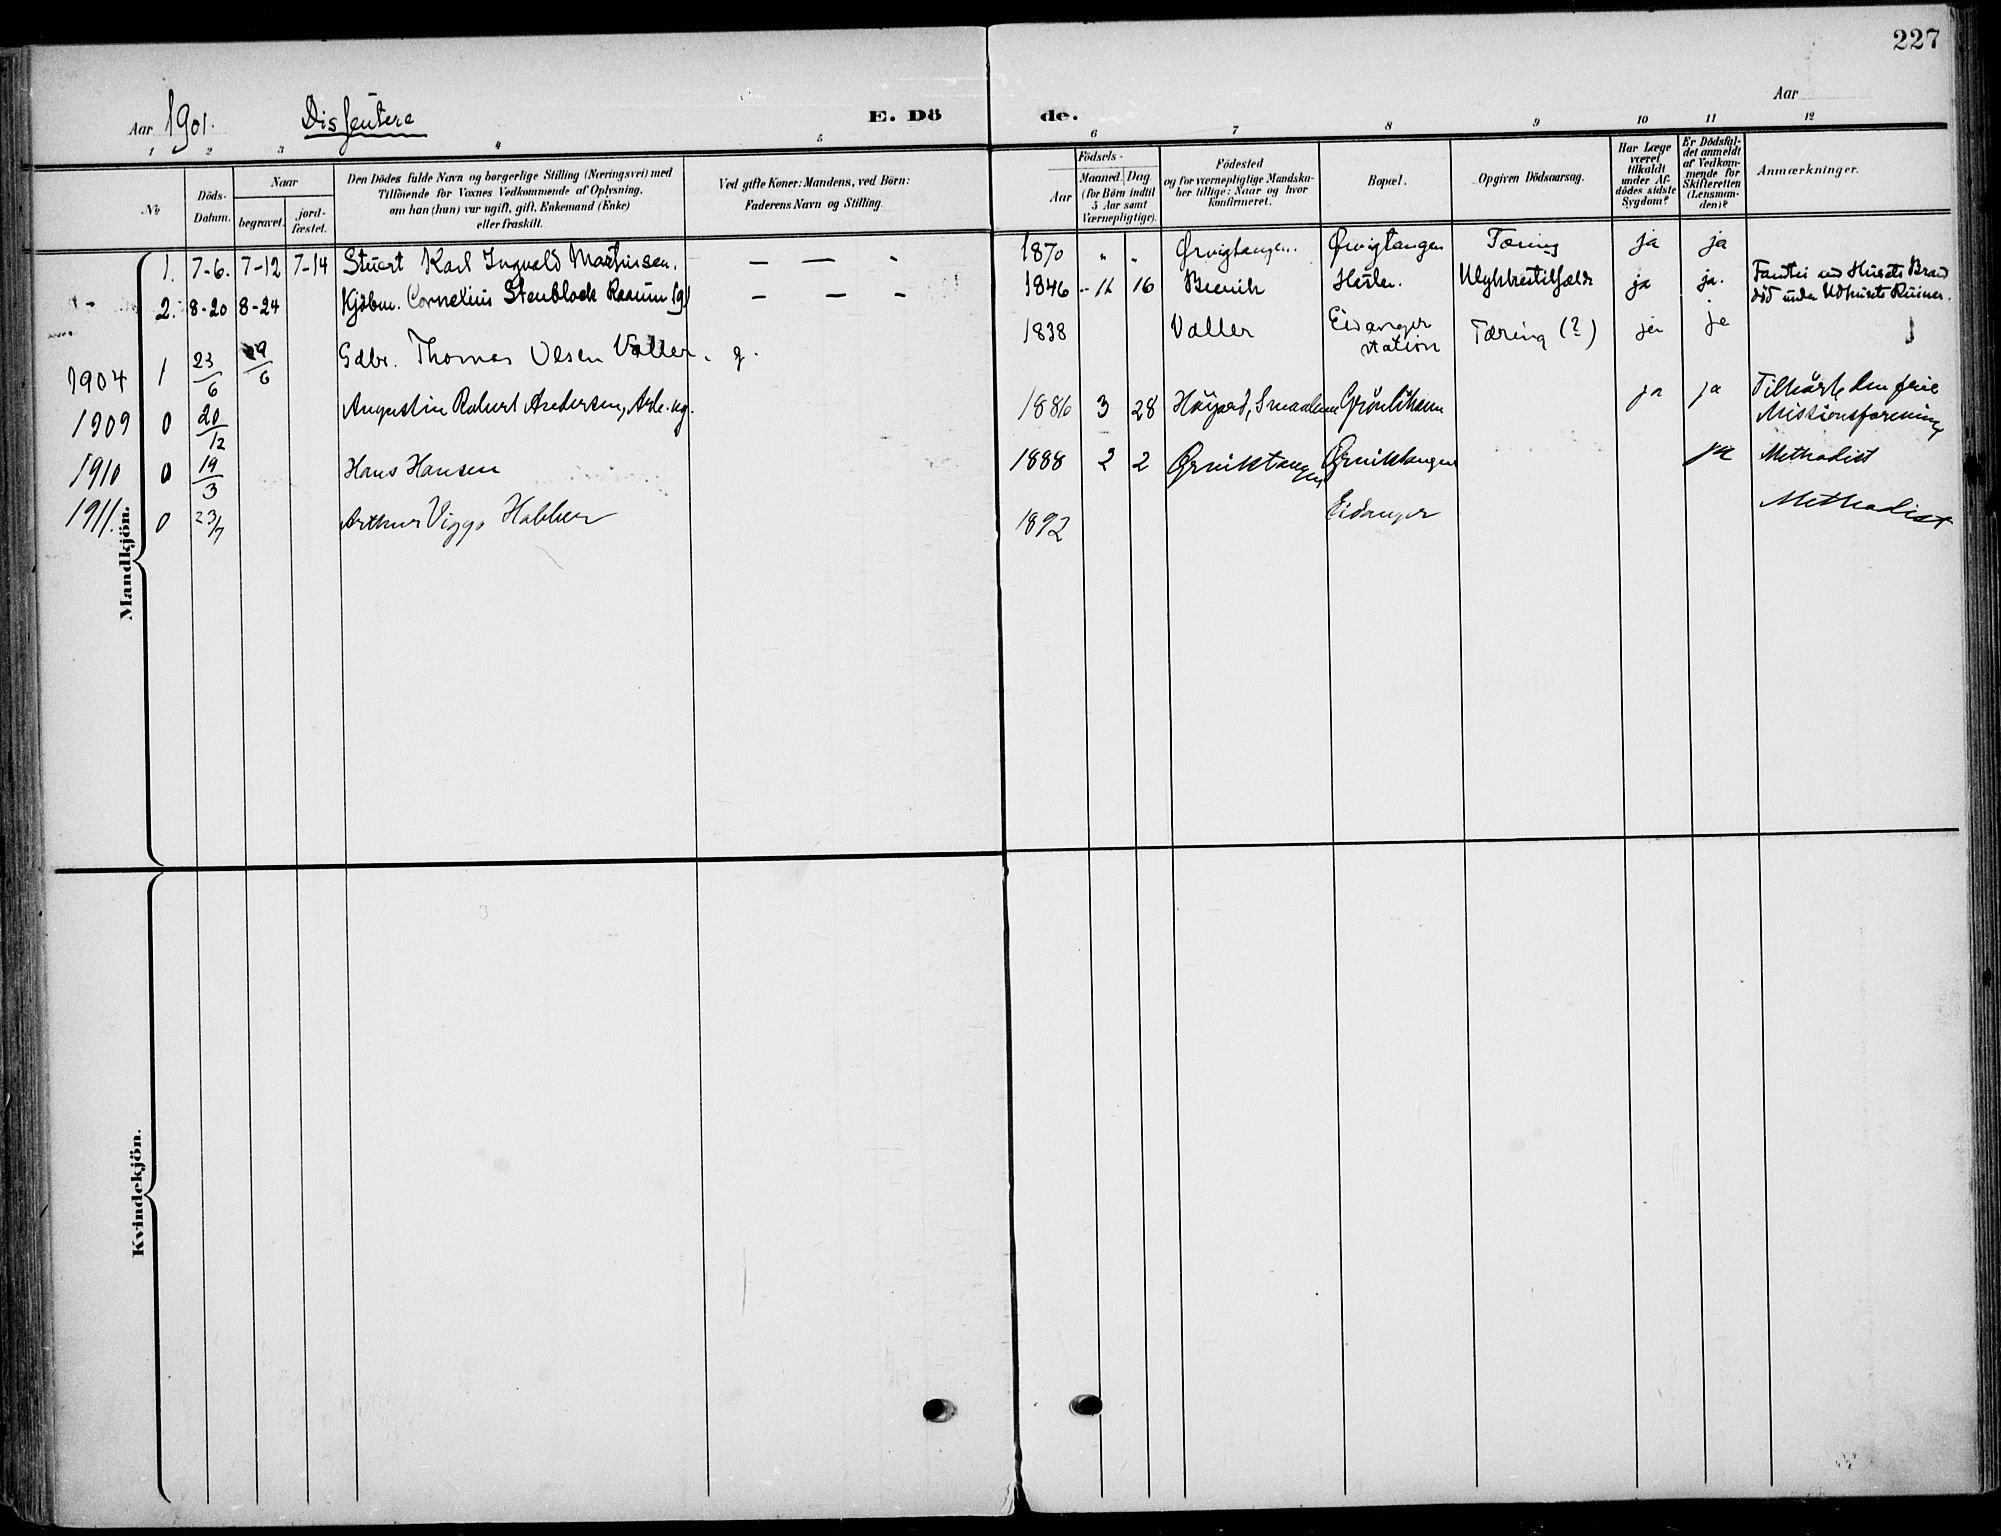 227
Aar 1901. Dissentere E. Döde. Aar
1 2 3 4 5 6 7 8 9 10 11 12
No
Döds-Datum.
Naar
begravet.
jord-fæstet.
Den Dödes fulde Navn og borgerlige Stilling (Næringsvei) med
Tilföiende for Voxnes Vedkommende af Oplysning.
om han (hun) var ugift, gift, Enkemand (Enke)
eller fraskilt.
Ved gifte Koner: Mandens, ved Börn:
Faderens Navn og Stilling.
Födsels-
Aar
Maaned. Dag
(for Börn indtil
5 Aar samt
Værnepligtige).
Födested
og for værnepligtige Mandska-
ber tillige: Naar og hvor
konfirmeret.
Bopæl.
Opgiven Dödsaarsag.
Har Læge
været
tilkaldt
under Af-
dödes sidste
Sygdom?
Er Dödsfal-
det anmeldt
af Vedkom-
mende for
Skifteretten
(Lensman-
den)?
Anmærkninger.
Mandkjön.
1. 7-6. 7-12 7-14 Stuert Karl Ingvald Martinsen. — — - 1870 " " Ørvigtangen. Ørvigtangen Tæring ja ja
2. 8-20 8-24 Kjöbm. Cornelius Stenblock Raaum (g) — — - 1846 11 16 Brevik ja ja.
død under Udhusets Ruiner.
1904 1 23/6 29/6 Gdbr. Thomas Olsen Valler. g. 1838 Valler Eidanger station Tæring (?) ja ja
1909 0 20/12 Augustin Robert Andersen, Arb. ug. 1886 3 28 ja ja Tilhørte den frie
Missionsforening
1910 0 19/3 Hans Hansen 1888 2 2 Ørviktangen Ørviktangen ja Methodist
1911. 0 23/7 Arthur Viggo 1892 Eidanger Methodist
Kvindekjön.